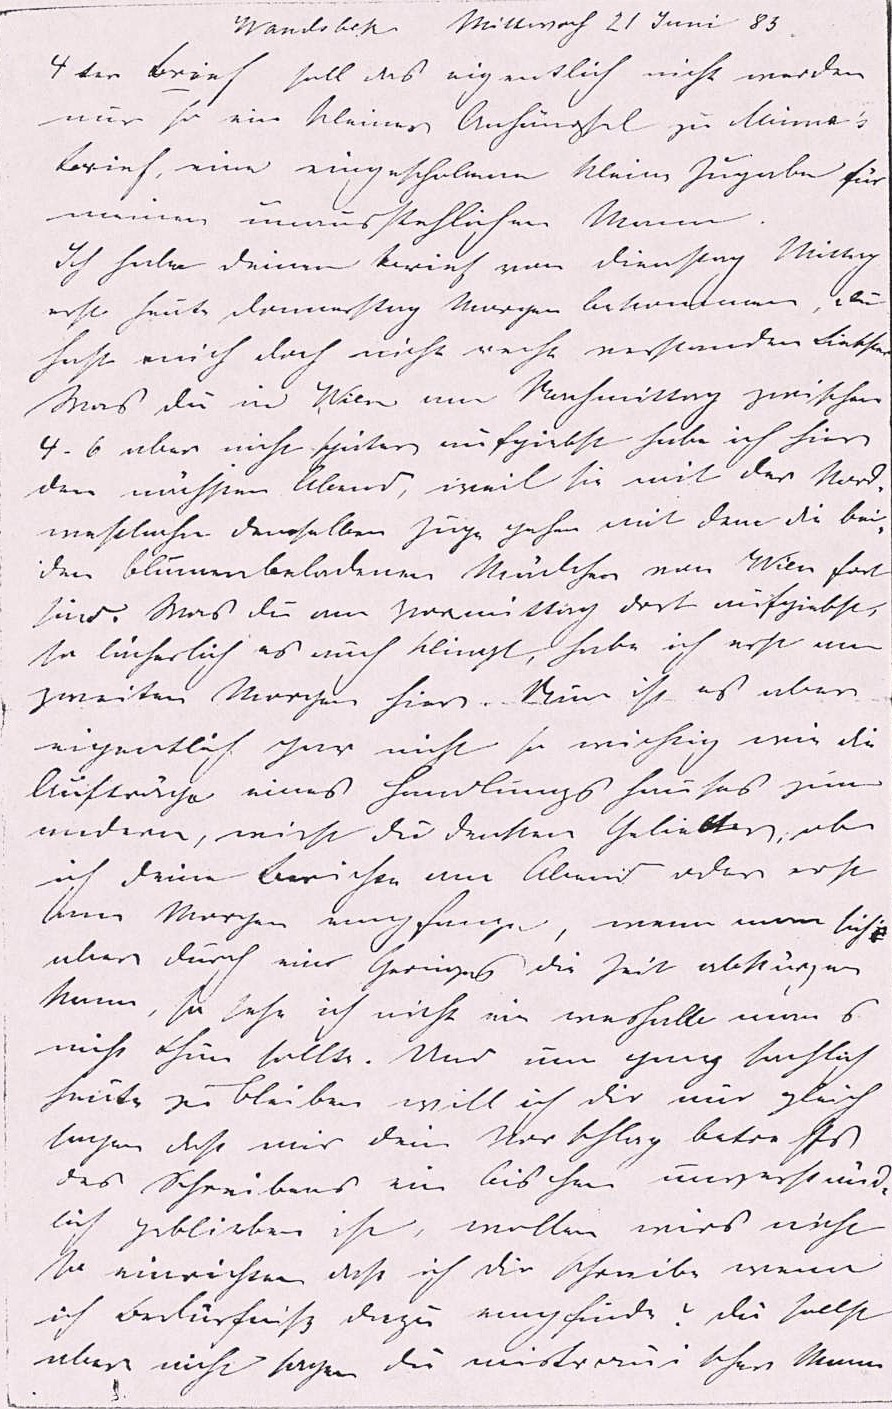 Wandsbek Mittwoch 21 Juni 83
4ter Brief soll das eigentlich nicht werden
nur so ein kleines Anhängsel zu Minna's
Brief, eine eingeschobene kleine Zugabe für
meinen unausstehlichen Mann.
Ich habe deinen Brief von Dienstag Mittag
erst heute Donnerstag Morgen bekommen, du
hast mich doch nicht recht verstanden Liebster
Was du in Wien am Nachmittag zwischen
4-6 aber nicht später aufgiebst habe ich hier
den nächsten Abend, weil sie mit der Nord-
westbahn demselben Zuge gehen mit dem die bei-
den blumenbeladenen Mädchen von Wien fort
sind. Was du am Vormittag dort aufgiebst,
so lächerlich es auch klingt, habe ich erst am
zweiten Morgen hier. Nun ist es aber
eigentlich gar nicht so wichtig wie die
Aufträge eines Handlungshauses zum
andern, wirst du denken Geliebter, ob
ich deine Berichte am Abend oder erst
am Morgen empfange, wenn man sich
aber durch ein Geringes die Zeit abkürzen
kann, so sehe ich nicht ein weshalb man's
nicht thun sollte. Und um ganz sachlich
heute zu bleiben will ich dir nur gleich
sagen daß mir dein Vorschlag betreffs
des Schreibens ein bischen unverständ-
lich geblieben ist, wollen wirs nicht
so einrichten daß ich dir schreibe wenn
ich Bedürfniß dazu empfinde? du sollst
aber nicht sagen du mistrauischer Mann